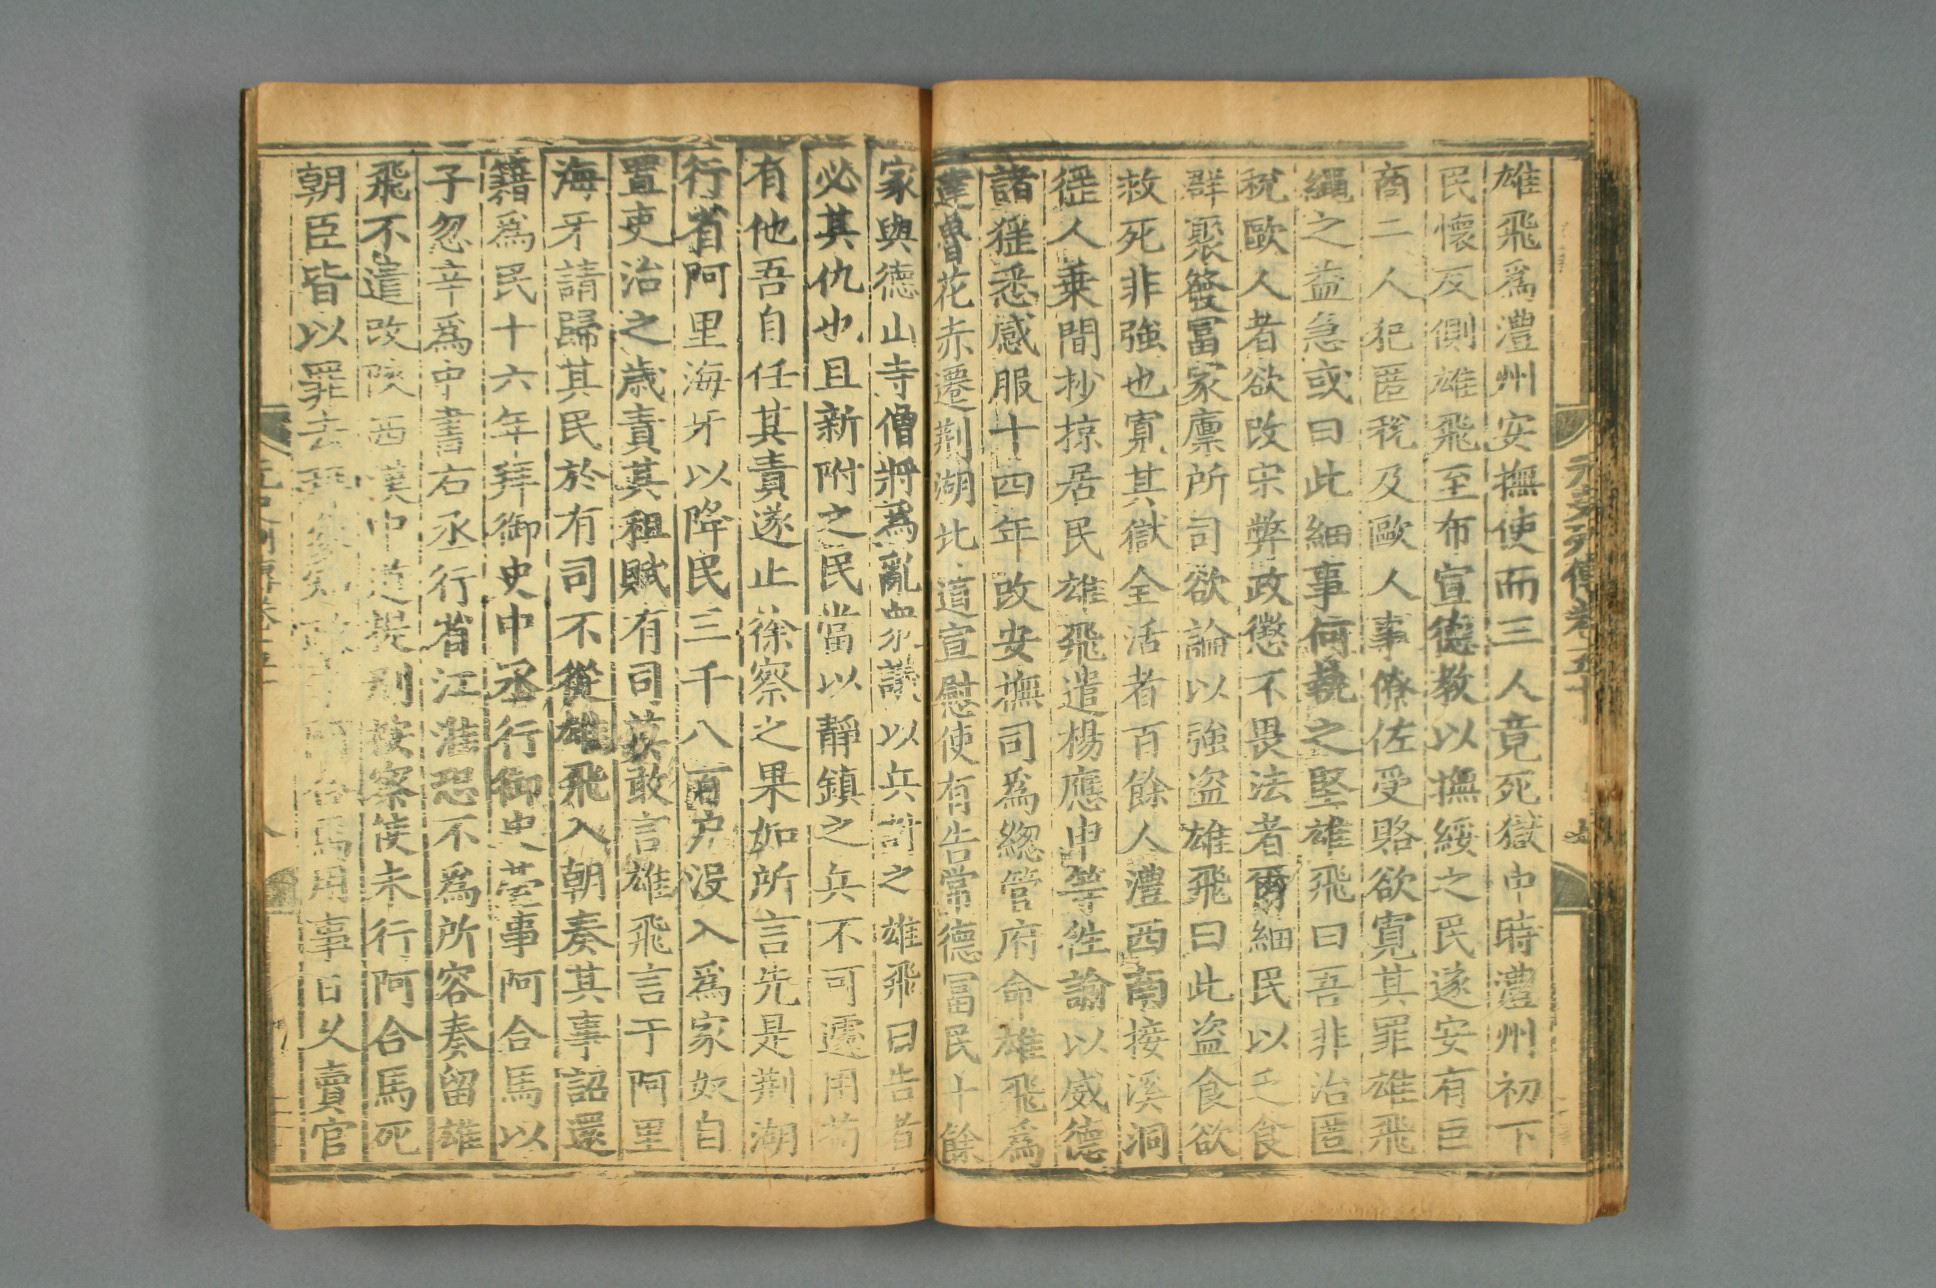 元史列傳卷五十
雄飛爲澧州安撫使而三人竟死獄中時澧州初下
民懷反側雄飛至布宣德教以撫綏之民遂安有巨
商二人犯匿稅及毆人事僚佐受賂欲寬其罪雄飛
繩之益急或曰此細事何執之堅雄飛曰吾非治匿
稅歐人者欲改宋弊政懲不畏法者爾細民以乏食
群聚發冨家廪所司欲論以強盗雄飛曰此盗食欲
救死非強也寬其獄全活者百餘人澧西南接溪洞
徭人乗間抄掠居民雄飛遣楊應申等徃諭以威德
諸猺悉感服十四年改安撫司爲緫管府命雄飛爲
達魯花赤遷荆湖北道宣慰使有告常德冨民十餘
家與德山寺僧將爲亂衆議以兵討之雄飛曰告者
必其仇也且新附之民當以静鎮之兵不可遽用苟
有他吾自任其責遂止徐察之果如所言先是荆湖
行省阿里海牙以降民三千八百戶没入爲家奴自
置吏治之歳責其租賦有司莫敢言雄飛言于阿里
海牙請歸其民於有司不從雄飛入朝奏其事詔還
籍爲民十六年拜御史中丞行御史臺事阿合馬以
子忽辛爲中書右丞行省江淮恐不爲所容奏留雄
飛不遣改陝西漢中道提刑按察使未行阿合馬死
朝臣皆以罪去 用事日久賣官